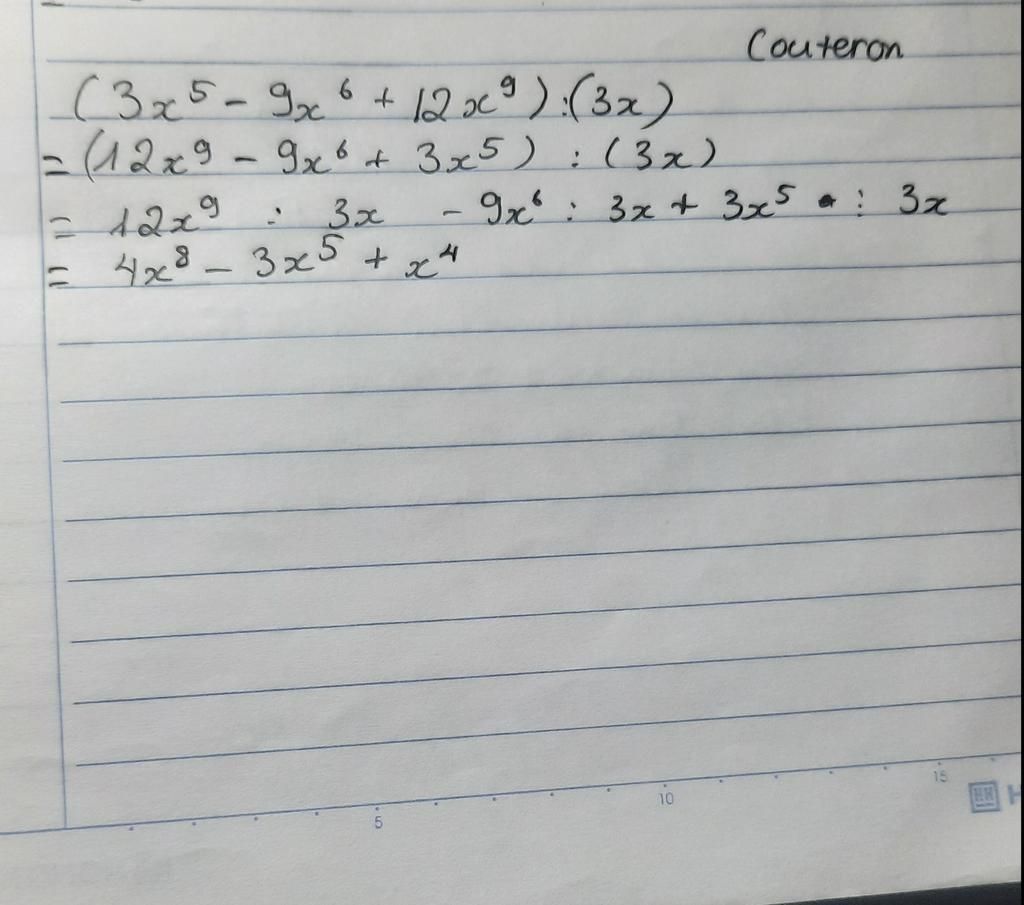 Couteron
(3x⁵ - 9x⁶ + 12x⁹) : (3x)
= (12x⁹ - 9x⁶ + 3x⁵) : (3x)
= 12x⁹ : 3x - 9x⁶ : 3x + 3x⁵ : 3x
= 4x⁸ - 3x⁵ + x⁴
5 10 15